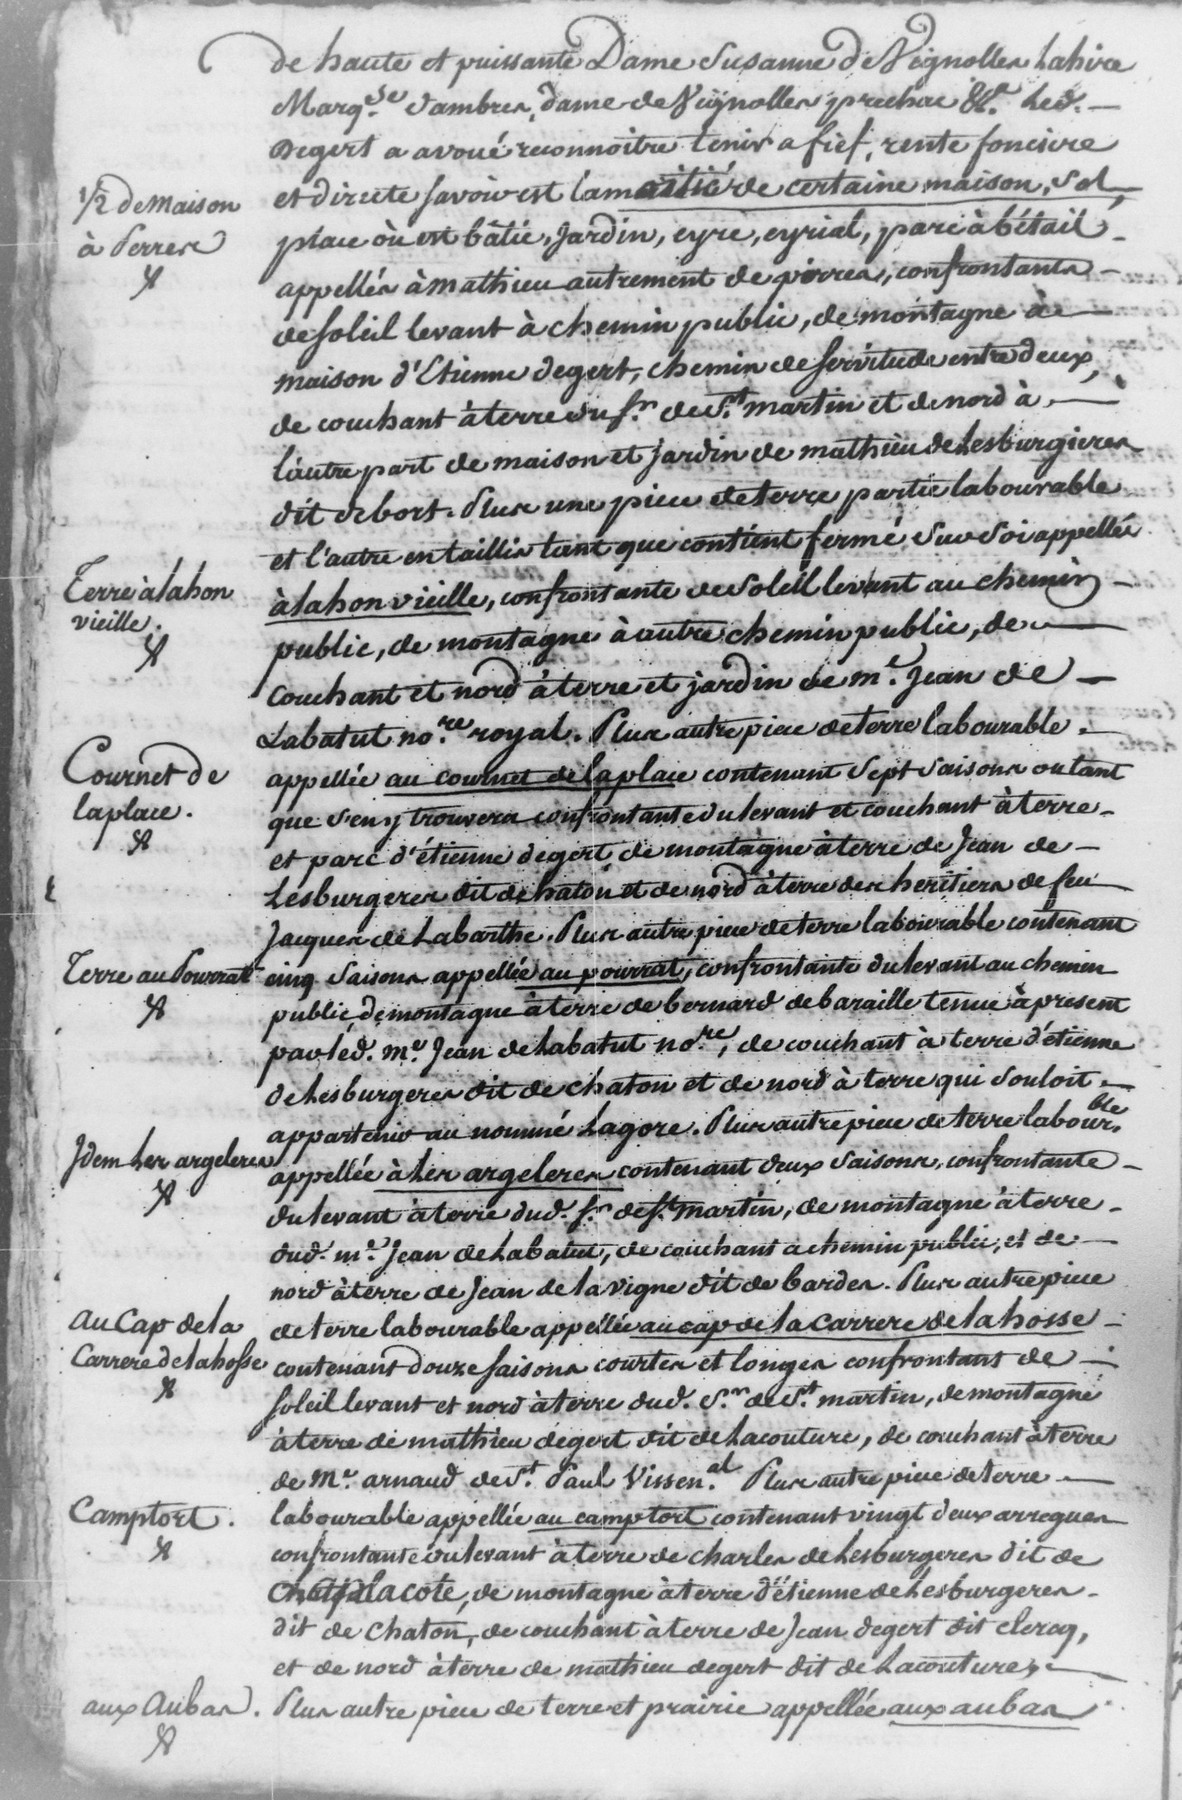 de haute et puissante Dame Susanne de Vignolles Lahire
Marq.se d'ambres, dame de Vignolles prechac &c.a Led.
Degert a avoué reconnoitre tenir a fief, rente fonciere
et directe savoir est la moitié de certaine maison, sol,
1/2 de Maison
à Perres
place où est bâtie, Jardin, eyre, eyrial, parc à bétail
appellés à mathieu autrement de pirres, confrontants
de soleil levant à chemin public, de montagne à
maison d'Etienne degert, chemin de servitude entre deux,
de couchant à terre du s.r de S.t martin et de nord à
l'autre part de maison et jardin de mathieu de Lesburgieres
dit de bort. Plus une piece de terre partie labourable
et l'autre en taillis tant que contient fermé sur soi appellée
Terre à lahon
vieille.
à lahon vieille, confrontante de soleil levant au chemin
public, de montagne à autre chemin public, de
couchant et nord à terre et jardin de m.e Jean de
Labatut no.re royal. Plus autre piece de terre labourable
Cournet de
laplace.
appellée au cournet de la place contenant sept saisons ou tant
que s'en y trouvera confrontante du levant et couchant à terre
et parc d'étienne degert de montagne à terre de Jean de
Lesburgeres dit de haton et de nord à terre des heritiers de feu
Jacques de Labarthe. Plus autre piece de terre labourable contenant
Terre au Pourrat
cinq saisons appellée au pourrat, confrontante du levant au chemin
public, de montagne à terre de bernard de baraille tenue à present
par led. m.e Jean de Labatut no.re, de couchant à terre d'étienne
de Lesburgeres dit de chaton et de nord à terre qui souloit
appartenir au nommé Lagore. Plus autre piece de terre labour.ble
Idem Les argeleres
appellée à Les argeleres contenant deux saisons, confrontante
du levant à terre dud. s.r de S.t martin, de montagne à terre
dud. m.e Jean de Labatut, de couchant a chemin public, et de
nord à terre de Jean de la vigne dit de bardes. Plus autre piece
au Cap de la
Carrere de lahosse
de terre labourable appellée au cap de la carrere de la hosse
contenant douze saisons courtes et longes confrontant de
soleil levant et nord à terre dud. s.r de S.t martin, de montagne
à terre de mathieu degert dit de Lacouture, de couchant à terre
de M.e arnaud de S.t Paul Vissen.al Plus autre piece de terre
Camptort.
labourable appellée au camptort contenant vingt deux arregues
confrontante du levant à terre de charles de Lesburgeres dit de
Lacote, de montagne à terre d'étienne de Lesburgeres
dit de chaton, de couchant à terre de Jean degert dit clercq,
et de nord à terre de mathieu degert dit de Lacouture,
aux Aubas.
Plus autre piece de terre et prairie appellée aux aubas